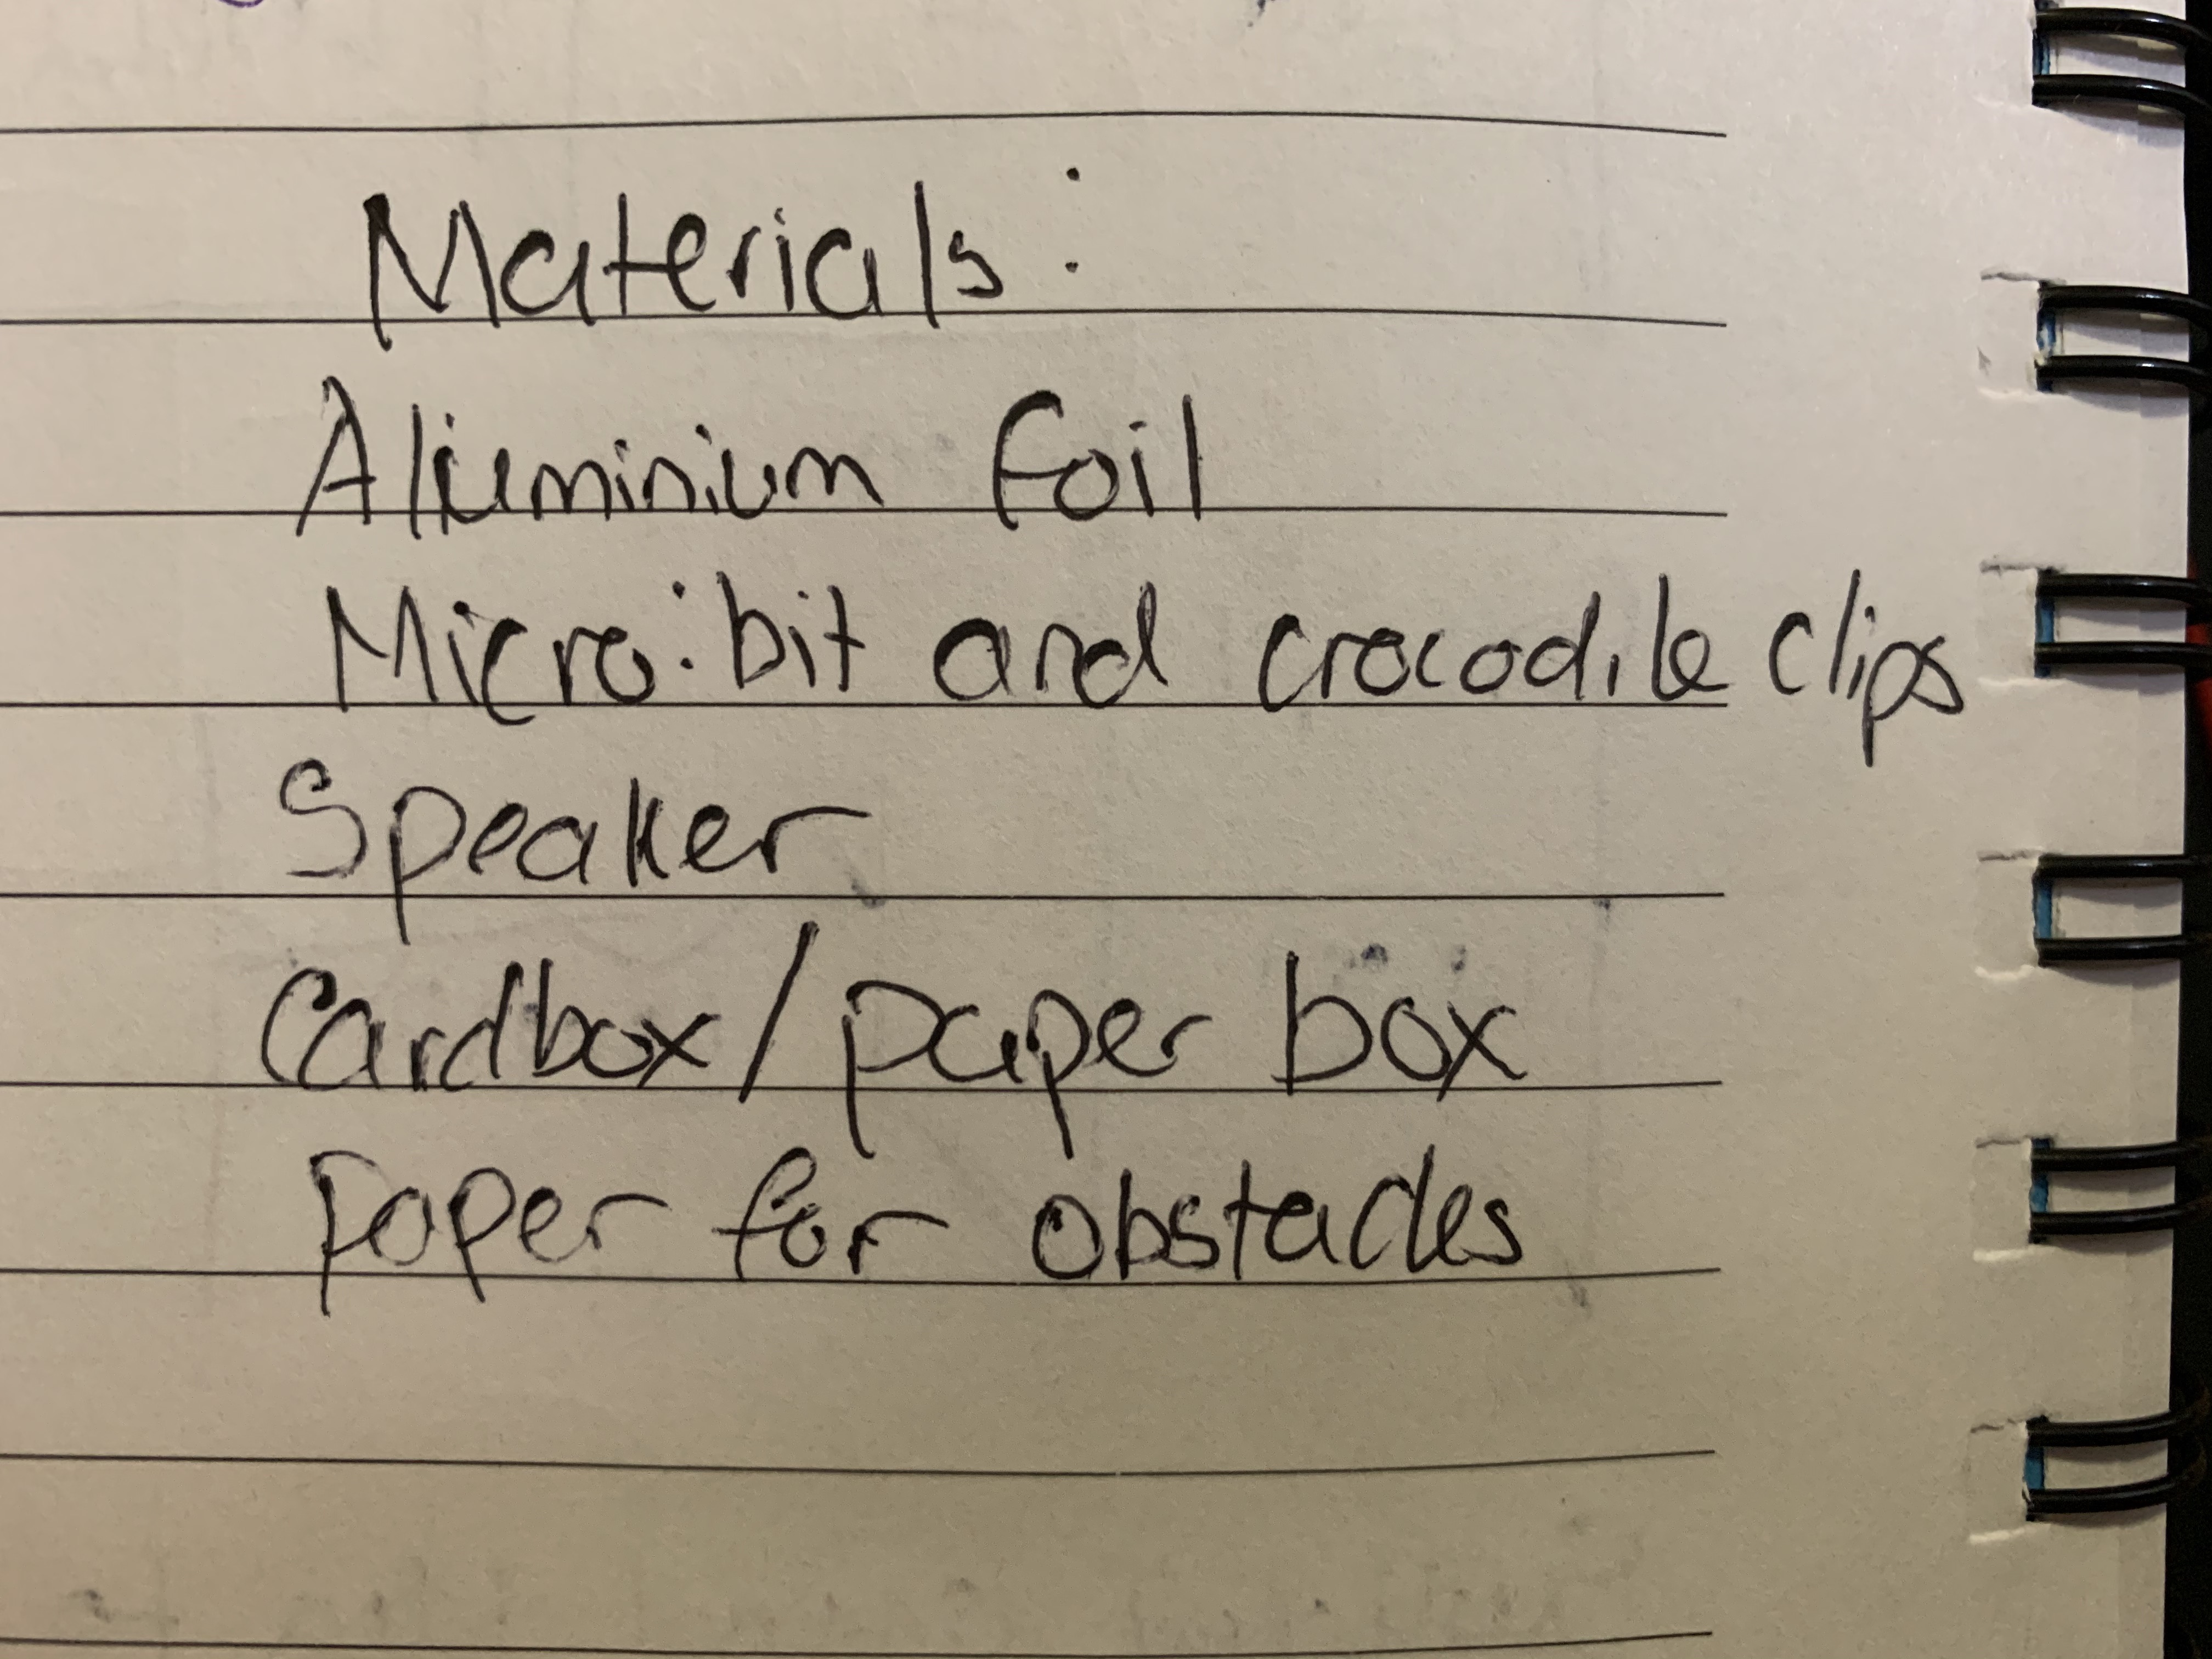 Materials:
Aluminium foil
Micro:bit and crocodile clips
Speaker
Cardbox/paper box
Paper for obstacles